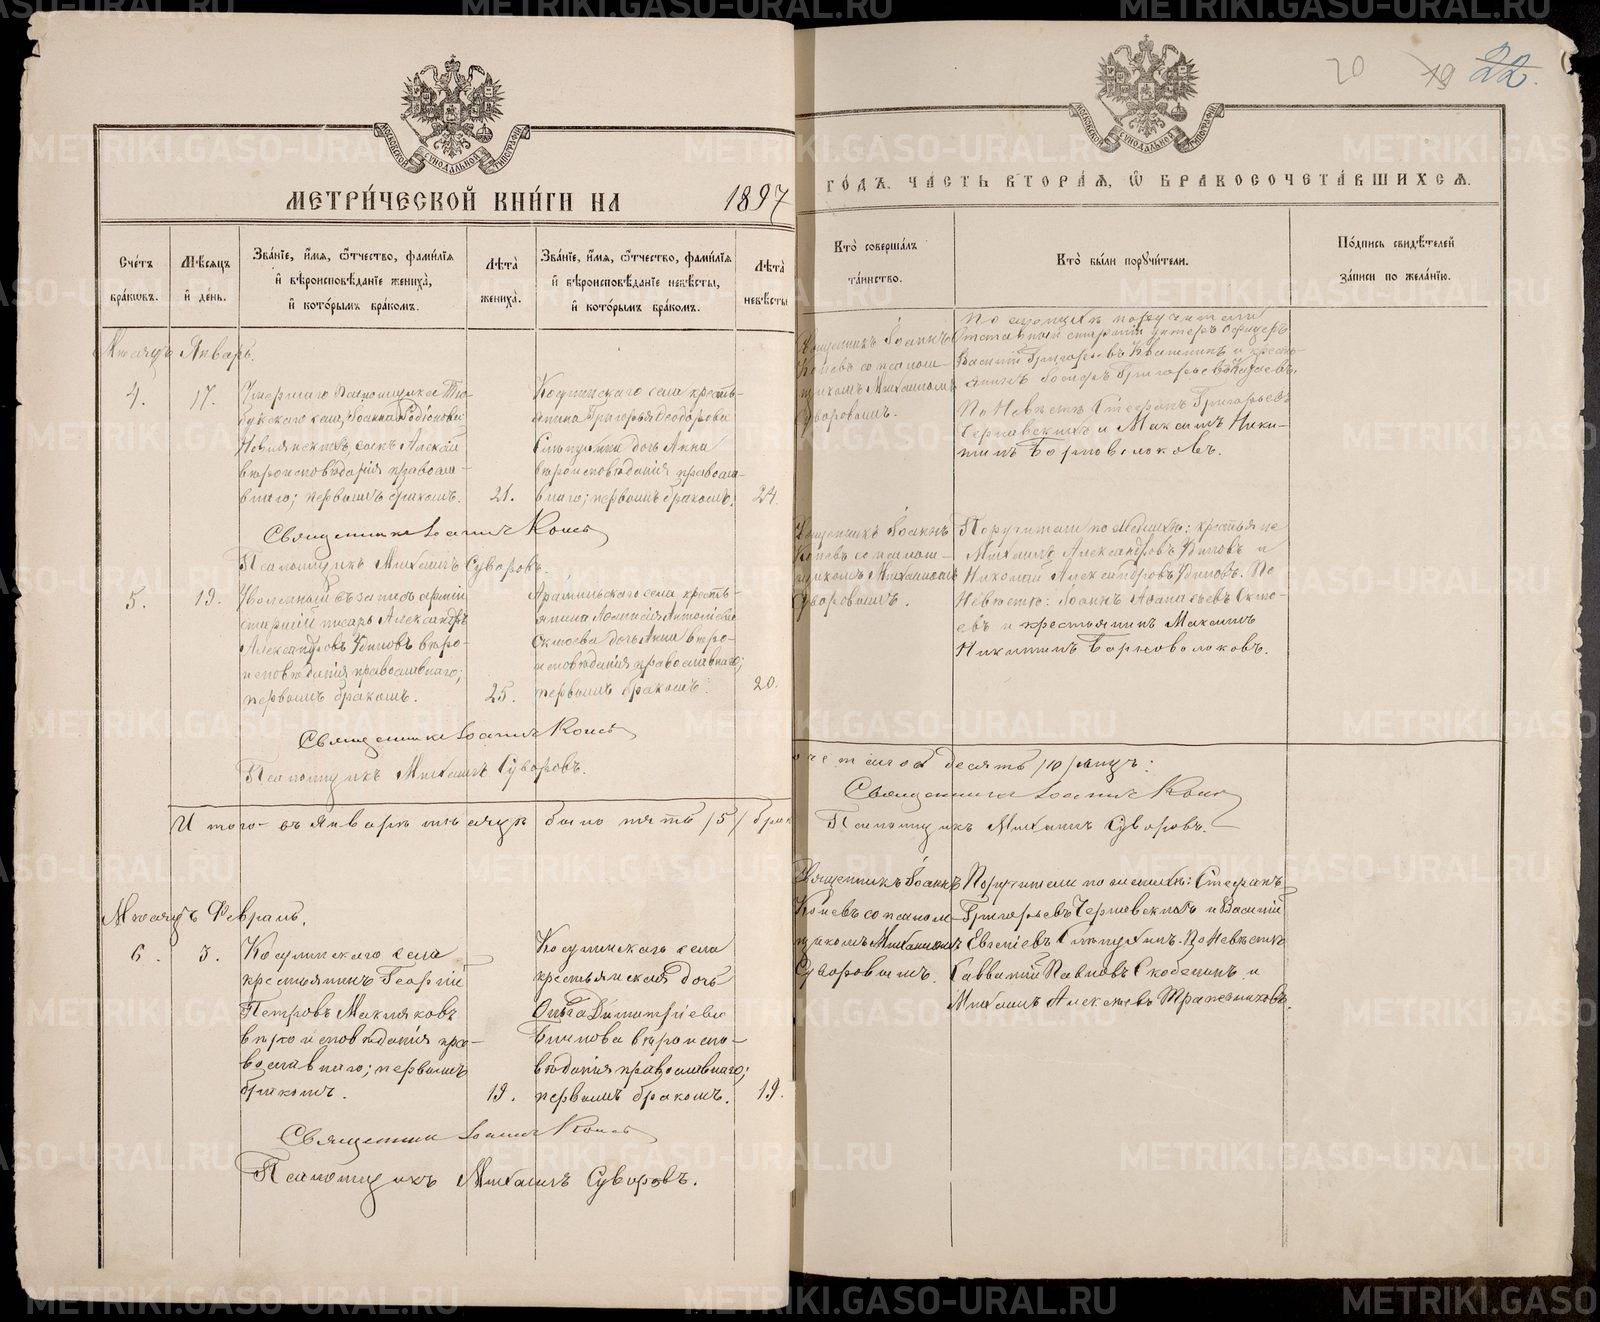 METRIKI.GASO-URAL.RU
20 19 22.
МОСКОВСКОЙ СѴНОДАЛЬНОЙ ТИПОГРАФІИ
МОСКОВСКОЙ СѴНОДАЛЬНОЙ ТИПОГРАФІИ
МЕТРИ́ЧЕСКОЙ КНИ́ГИ НА 1897
ГО́ДЪ. ЧА́СТЬ ВТОРА́Я, Ѽ БРАКОСОЧЕТА́ВШИХСЯ.
Сче́тъ бра́кѡвъ.
Мѣ́сяцъ и҆ де́нь.
Зва́нїе, и҆́мя, ѻ҆́тчество, фами́лїя
и҆ вѣроисповѣ́данїе жениха̀,
и҆ кото́рымъ бра́комъ.
Лѣ́та жениха̀.
Зва́нїе, и҆́мя, ѻ҆́тчество, фами́лїя
и҆ вѣроисповѣ́данїе невѣ́сты,
и҆ кото́рымъ бра́комъ.
Лѣ́та невѣ́сты
Кто̀ соверша́лъ
та́инство.
Кто̀ бы́ли порꙋчи́тели.
По́дпись свидѣ́телей
за́писи по жела́нїю.
Мѣсяцъ Январь.
4. 17.
Невьянскихъ сынъ Алексій
вѣроисповѣданія правосла-
внаго; первымъ бракомъ. 21.
Косулинскаго села кресть-
янина Григорья Ѳеодорова
дочь Анна
вѣроисповѣданія правосла-
внаго; первымъ бракомъ. 24.
Священникъ Іоаннъ
Коневъ со псалом-
щикомъ Михаиломъ
Суворовымъ.
По женихѣ поручители
Отставный старшій унтеръ офицеръ
Василій Григорьевъ и кресть-
янинъ Григорьевъ
По Невѣстѣ Стефанъ Григорьевъ
Чернавскихъ и Максимъ Ники-
тинъ Борноволоковъ.
Священникъ Іоаннъ Коневъ
Псаломщикъ Михаилъ Суворовъ.
5. 19.
Уволенный въ запасъ арміи
старшій писарь Александръ
Александровъ Удиловъ вѣро-
исповѣданія православнаго;
первымъ бракомъ. 25.
Арамильскаго села кресть-
янина
дочь Анна вѣро-
исповѣданія православнаго;
первымъ бракомъ. 20.
Священникъ Іоаннъ
Коневъ со псалом-
щикомъ Михаиломъ
Суворовымъ.
Поручители по женихѣ: крестьяне
Михаилъ Александровъ Удиловъ и
Николай Александровъ Удиловъ. По
Невѣстѣ: Іоаннъ
и крестьянинъ Максимъ
Никитинъ Борноволоковъ.
Священникъ Іоаннъ Коневъ
Псаломщикъ Михаилъ Суворовъ.
Итого въ Январѣ мѣсяцѣ было пять /5/ брак
десять /10/ лицъ:
Священникъ Іоаннъ Коневъ
Псаломщикъ Михаилъ Суворовъ.
Мѣсяцъ Февраль.
6. 3.
Косулинскаго села
крестьянинъ Георгій
Петровъ Макляковъ
вѣроисповѣданія пра-
вославнаго; первымъ
бракомъ. 19.
Косулинскаго села
крестьянская дочь
Ольга Димитріева
вѣроиспо-
вѣданія православнаго;
первымъ бракомъ. 19.
Священникъ Іоаннъ
Коневъ со псалом-
щикомъ Михаиломъ
Суворовымъ.
Поручители по женихѣ: Стефанъ
Григорьевъ Чернавскихъ и Василій
Евгеніевъ По Невѣстѣ
Савватій Павловъ Скобелинъ и
Михаилъ Алексѣевъ Трапезниковъ.
Священникъ Іоаннъ Коневъ
Псаломщикъ Михаилъ Суворовъ.